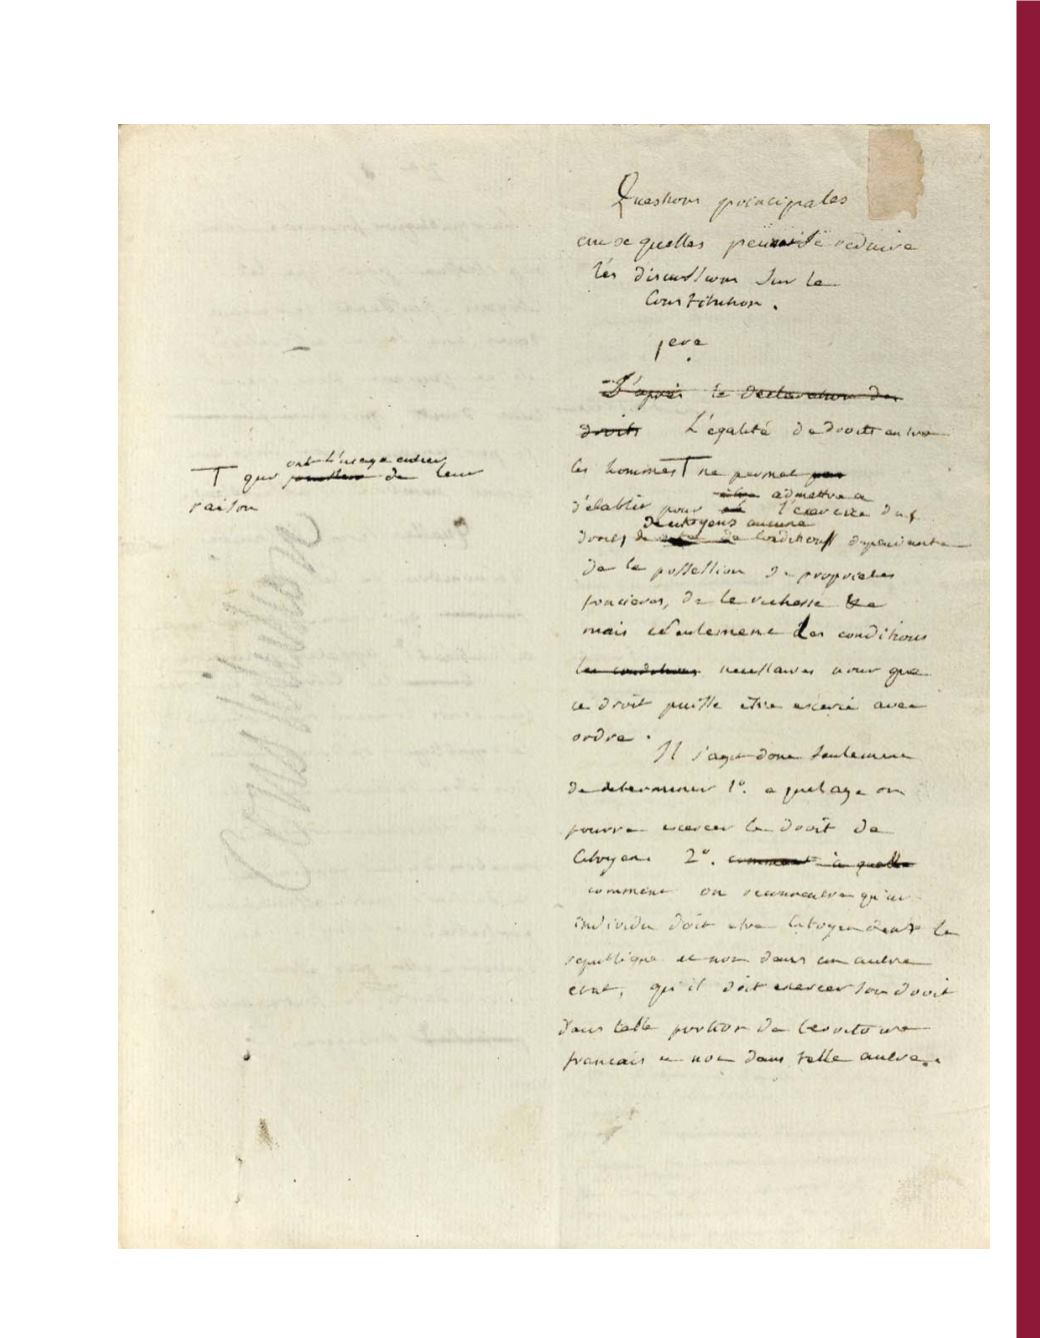 Questions principales
auxquelles peuvent se reduire
les discussions sur la
Constitution.
1ere
D'après la declaration des
droits L'égalité de droits entre
les hommes T ne permet pas
être admettre a
d'établir pour l'exercice des
de citoyens aucune
droits de conditions dependante
de la possession de proprietes
foncieres, de la richesse &a
mais seulement les conditions
les conditions necessaires pour que
ce droit puisse etre exercé avec
ordre.
Il s'agit donc seulement
de determiner 1°. a quel age on
pourra exercer le droit de
Citoyen. 2°. comment à quelle
comment on reconnaitra qu'un
individu doit etre Citoyen dans la
republique et non dans un autre
etat, qu'il doit exercer son droit
dans telle portion de territoire
français et non dans telle autre.
ont l'usage entier
T que jouissent de leur
raison
Constitution